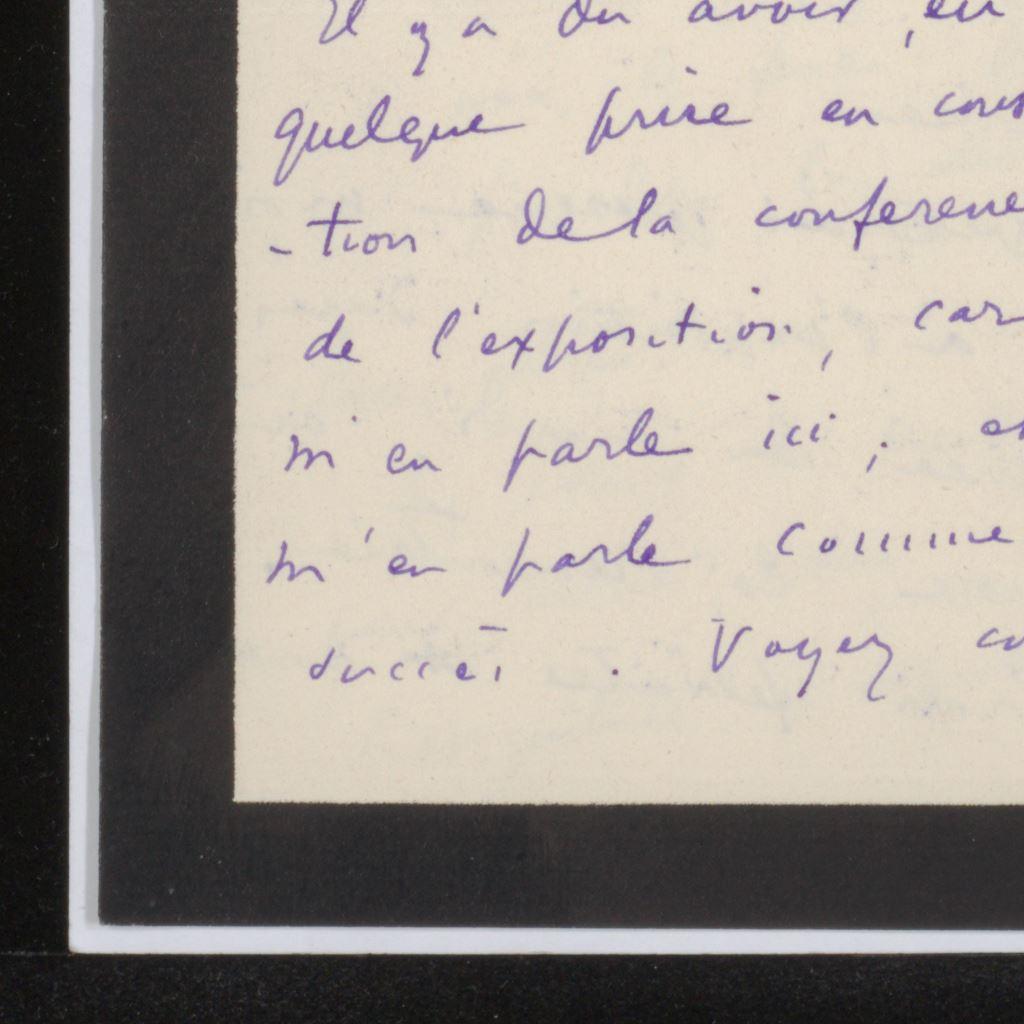 Il y a du avoir, en
quelque prise en cons
-tion de la conference
de l'exposition, car
m'en parle ici, et
m'en parle comme
succès. Voyez co